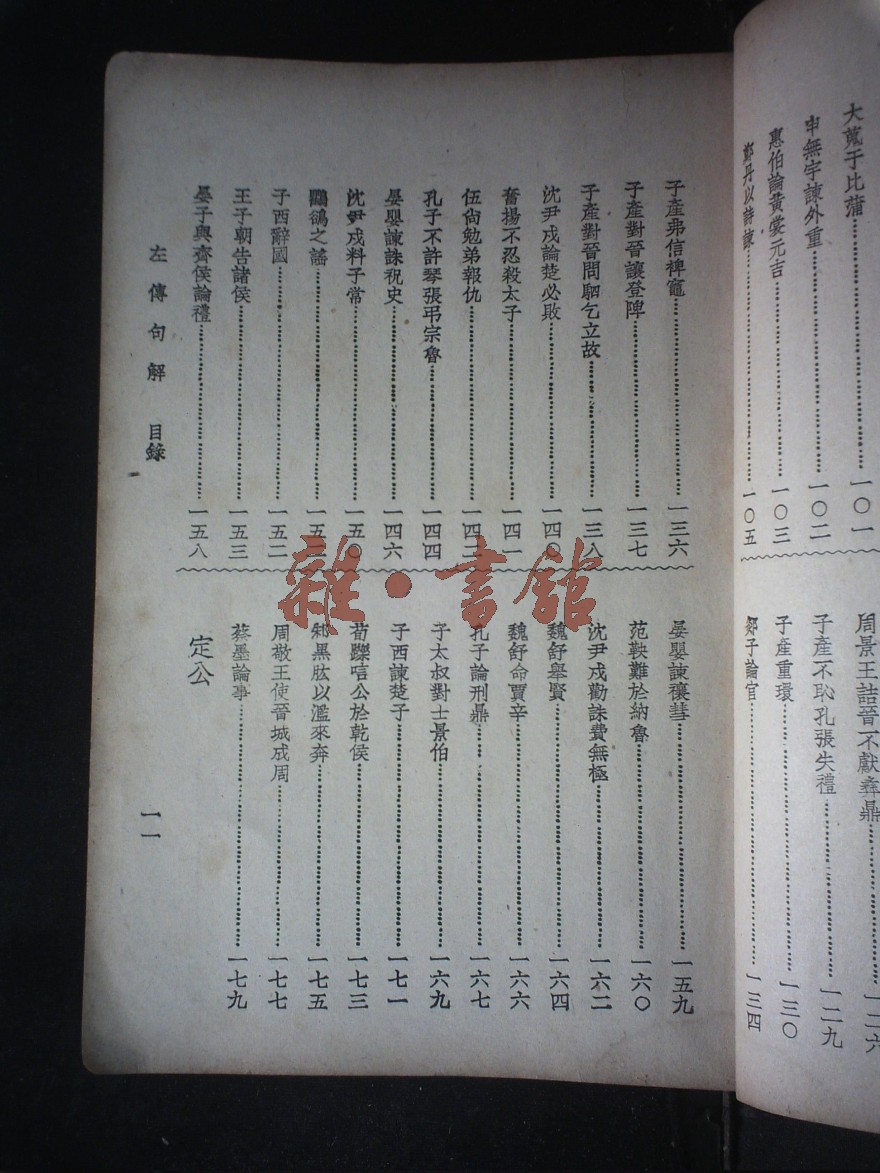 大蒐于比蒲 一〇一
申無宇諫外重 一〇二
惠伯論黃裳元吉 一〇三
鄭丹以詩諫 一〇五
周景王詰晉不獻彝鼎 一二六
子產不恥孔張失禮 一二九
子產重環 一三〇
郯子論官 一三四
子產弗信裨竈 一三六
子產對晉讓登陴 一三七
子產對晉問駟乞立故 一三八
沈尹戌論楚必敗 一四〇
奮揚不忍殺太子 一四一
伍尙勉弟報仇 一四二
孔子不許琴張弔宗魯 一四四
晏嬰諫誅祝史 一四六
沈尹戌料子常 一五〇
鸜鵒之謠
子西辭國 一五二
王子朝告諸侯 一五三
晏子與齊侯論禮 一五八
晏嬰諫禳彗 一五九
范鞅難於納魯 一六〇
沈尹戌勸誅費無極 一六二
魏舒舉賢 一六四
魏舒命賈辛 一六六
孔子論刑鼎 一六七
子太叔對士景伯 一六九
子西諫楚子 一七一
荀躒唁公於乾侯 一七三
邾黑肱以濫來奔 一七五
周敬王使晉城成周 一七七
蔡墨論事 一七九
定公
左傳句解 目錄
一一
雜·書館